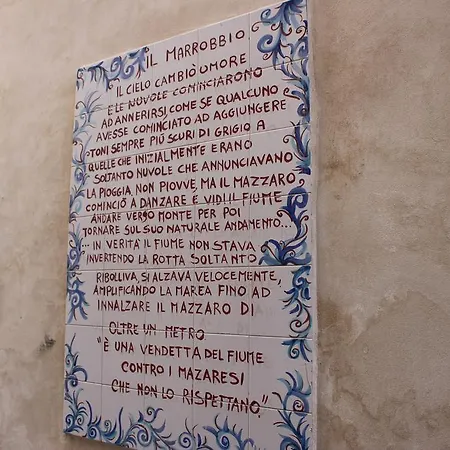 IL MARROBBIO
IL CIELO CAMBIÒ UMORE
E LE NUVOLE COMINCIARONO
AD ANNERIRSI, COME SE QUALCUNO
AVESSE COMINCIATO AD AGGIUNGERE
TONI SEMPRE PIÚ SCURI DI GRIGIO A
QUELLE CHE INIZIALMENTE ERANO
SOLTANTO NUVOLE CHE ANNUNCIAVANO
LA PIOGGIA. NON PIOVVE, MA IL MAZZARO
COMINCIÒ A DANZARE E VIDI IL FIUME
ANDARE VERSO MONTE PER POI
TORNARE SUL SUO NATURALE ANDAMENTO...
... IN VERITÀ IL FIUME NON STAVA
INVERTENDO LA ROTTA SOLTANTO
RIBOLLIVA, SI ALZAVA VELOCEMENTE,
AMPLIFICANDO LA MAREA FINO AD
INNALZARE IL MAZZARO DI
OLTRE UN METRO.
"È UNA VENDETTA DEL FIUME
CONTRO I MAZARESI
CHE NON LO RISPETTANO."